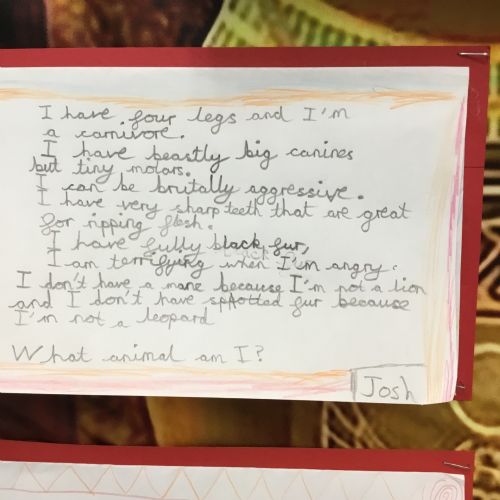 I have four legs and I'm
a carnivore.
I have beastly big canines
but tiny molars.
I can be brutally aggressive.
I have very sharp teeth that are great
for ripping flesh.
I have fully black fur,
I am terrifying when I'm angry.
I don't have a mane because I'm not a lion
and I don't have spotted fur because
I'm not a leopard
What animal am I?
Josh